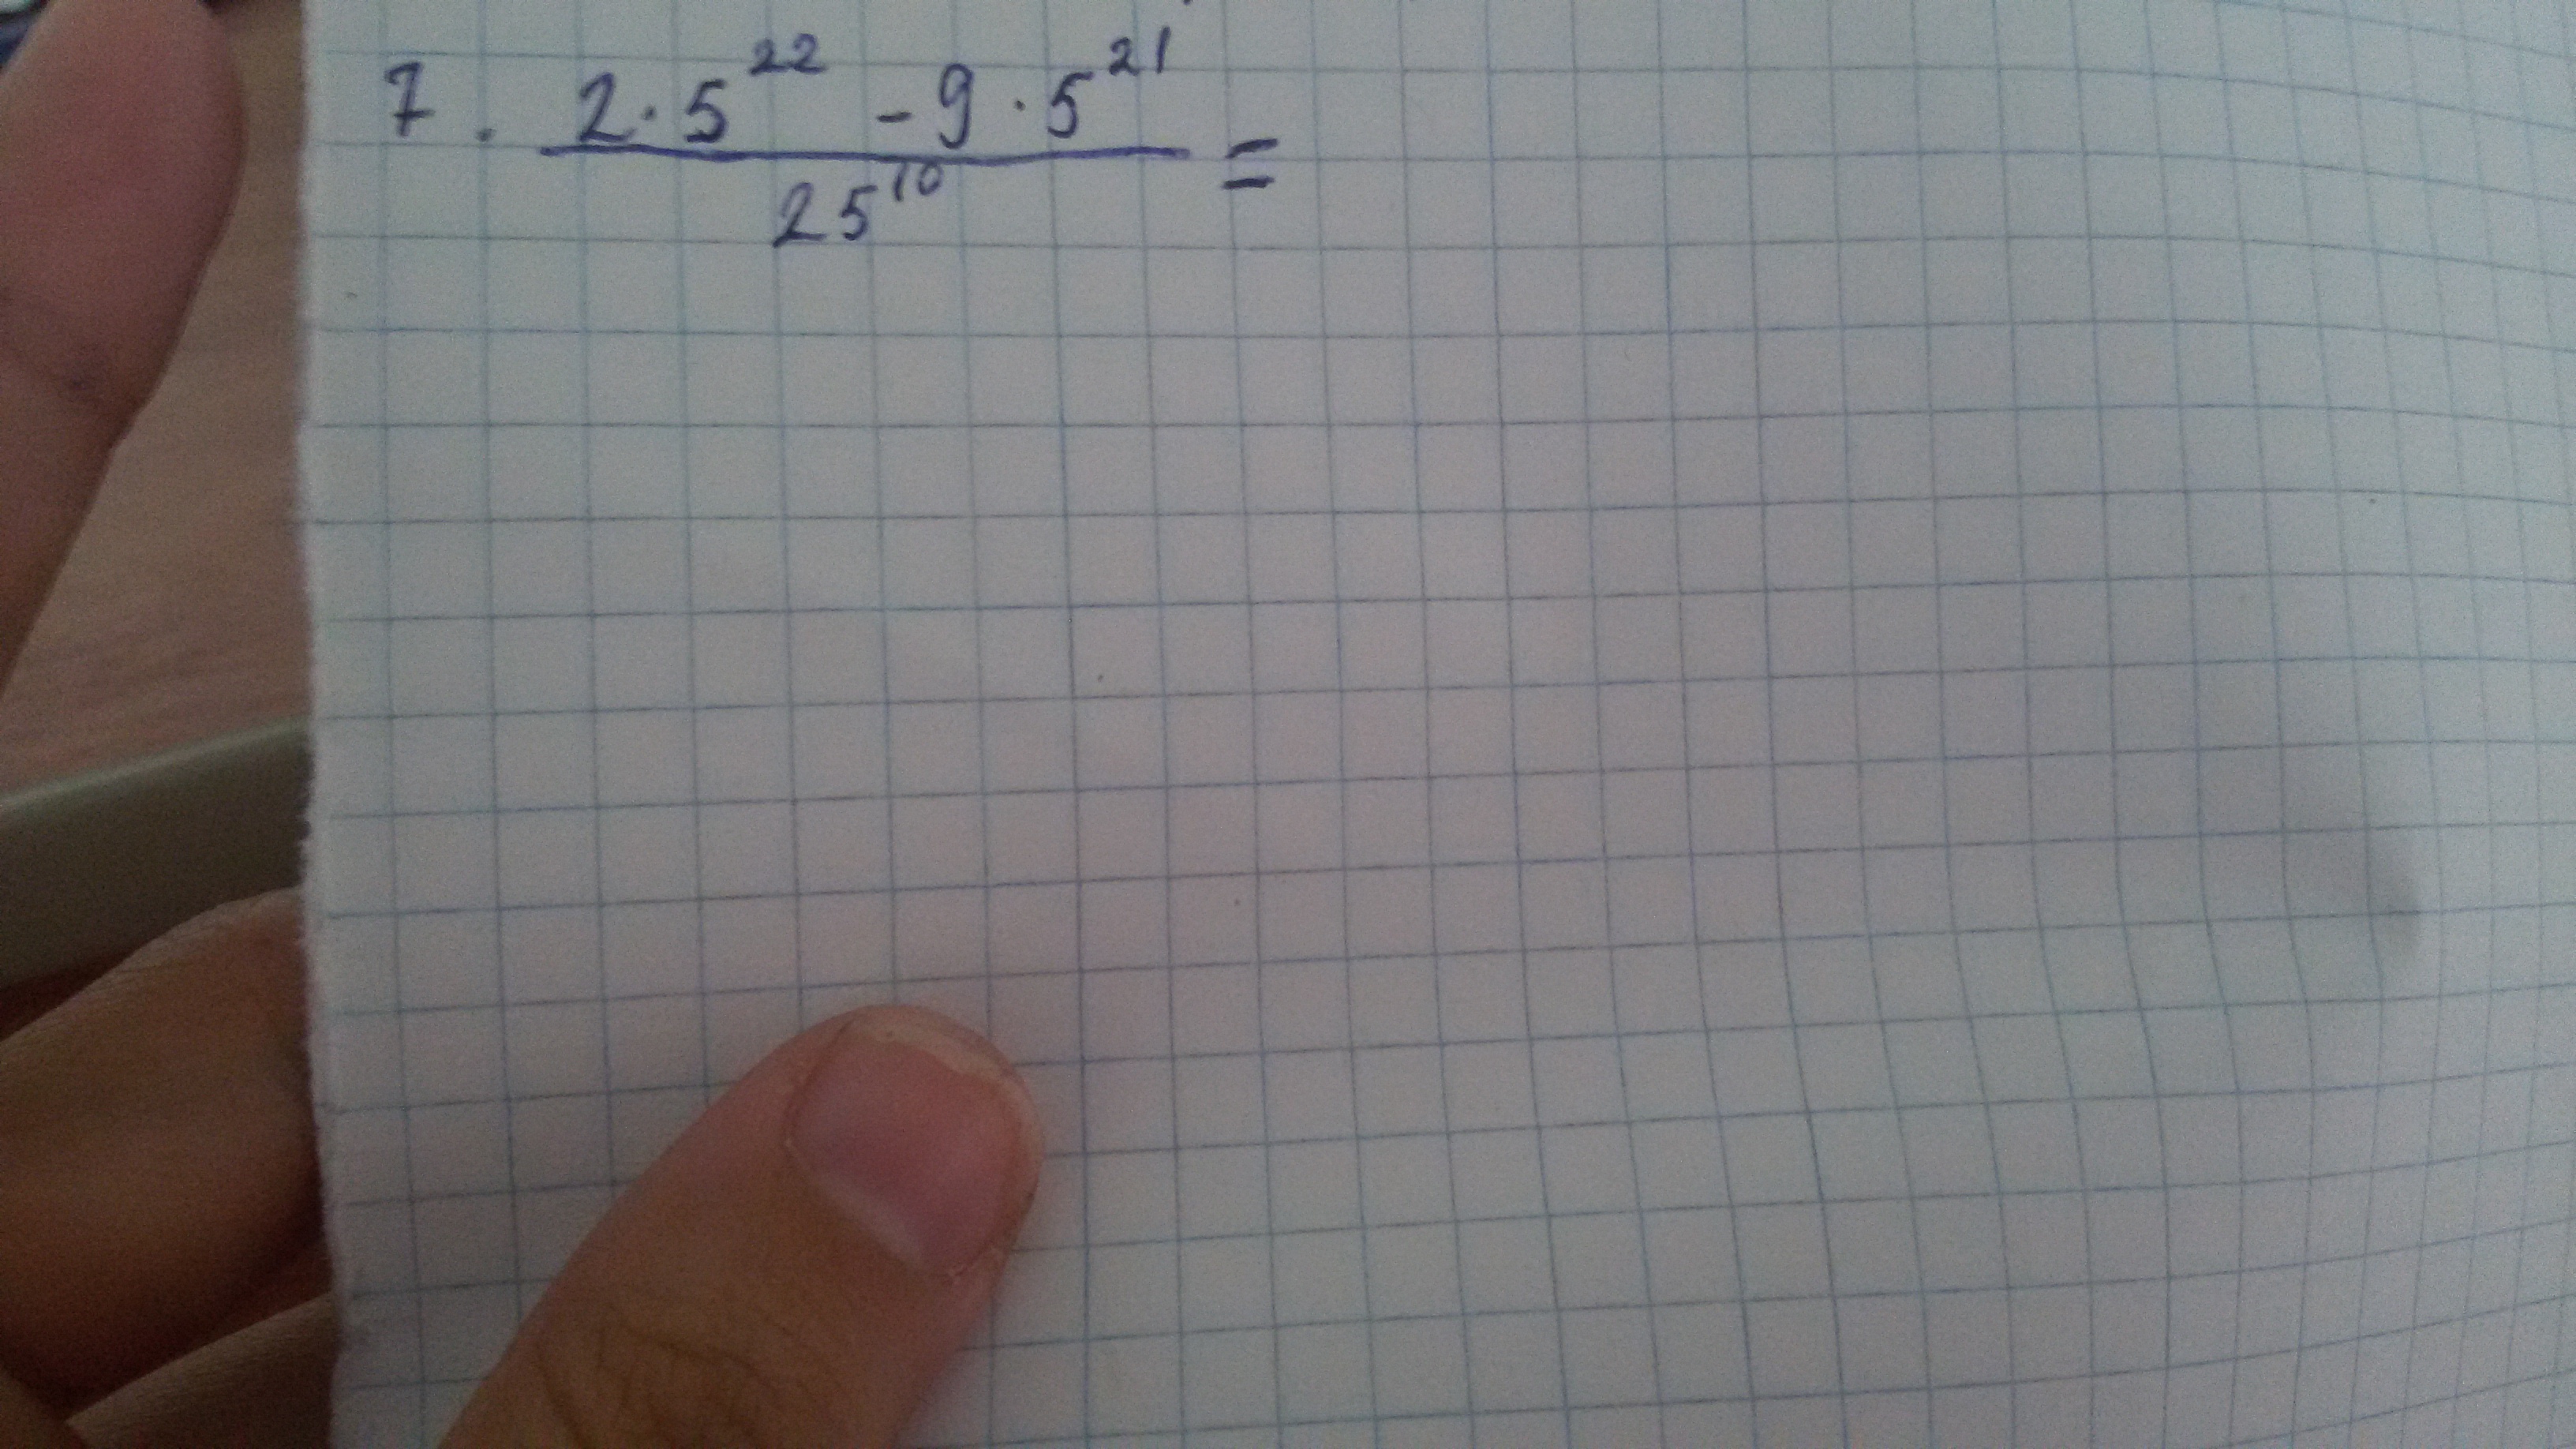 7. 2·5²² - 9·5²¹ =
25¹⁰